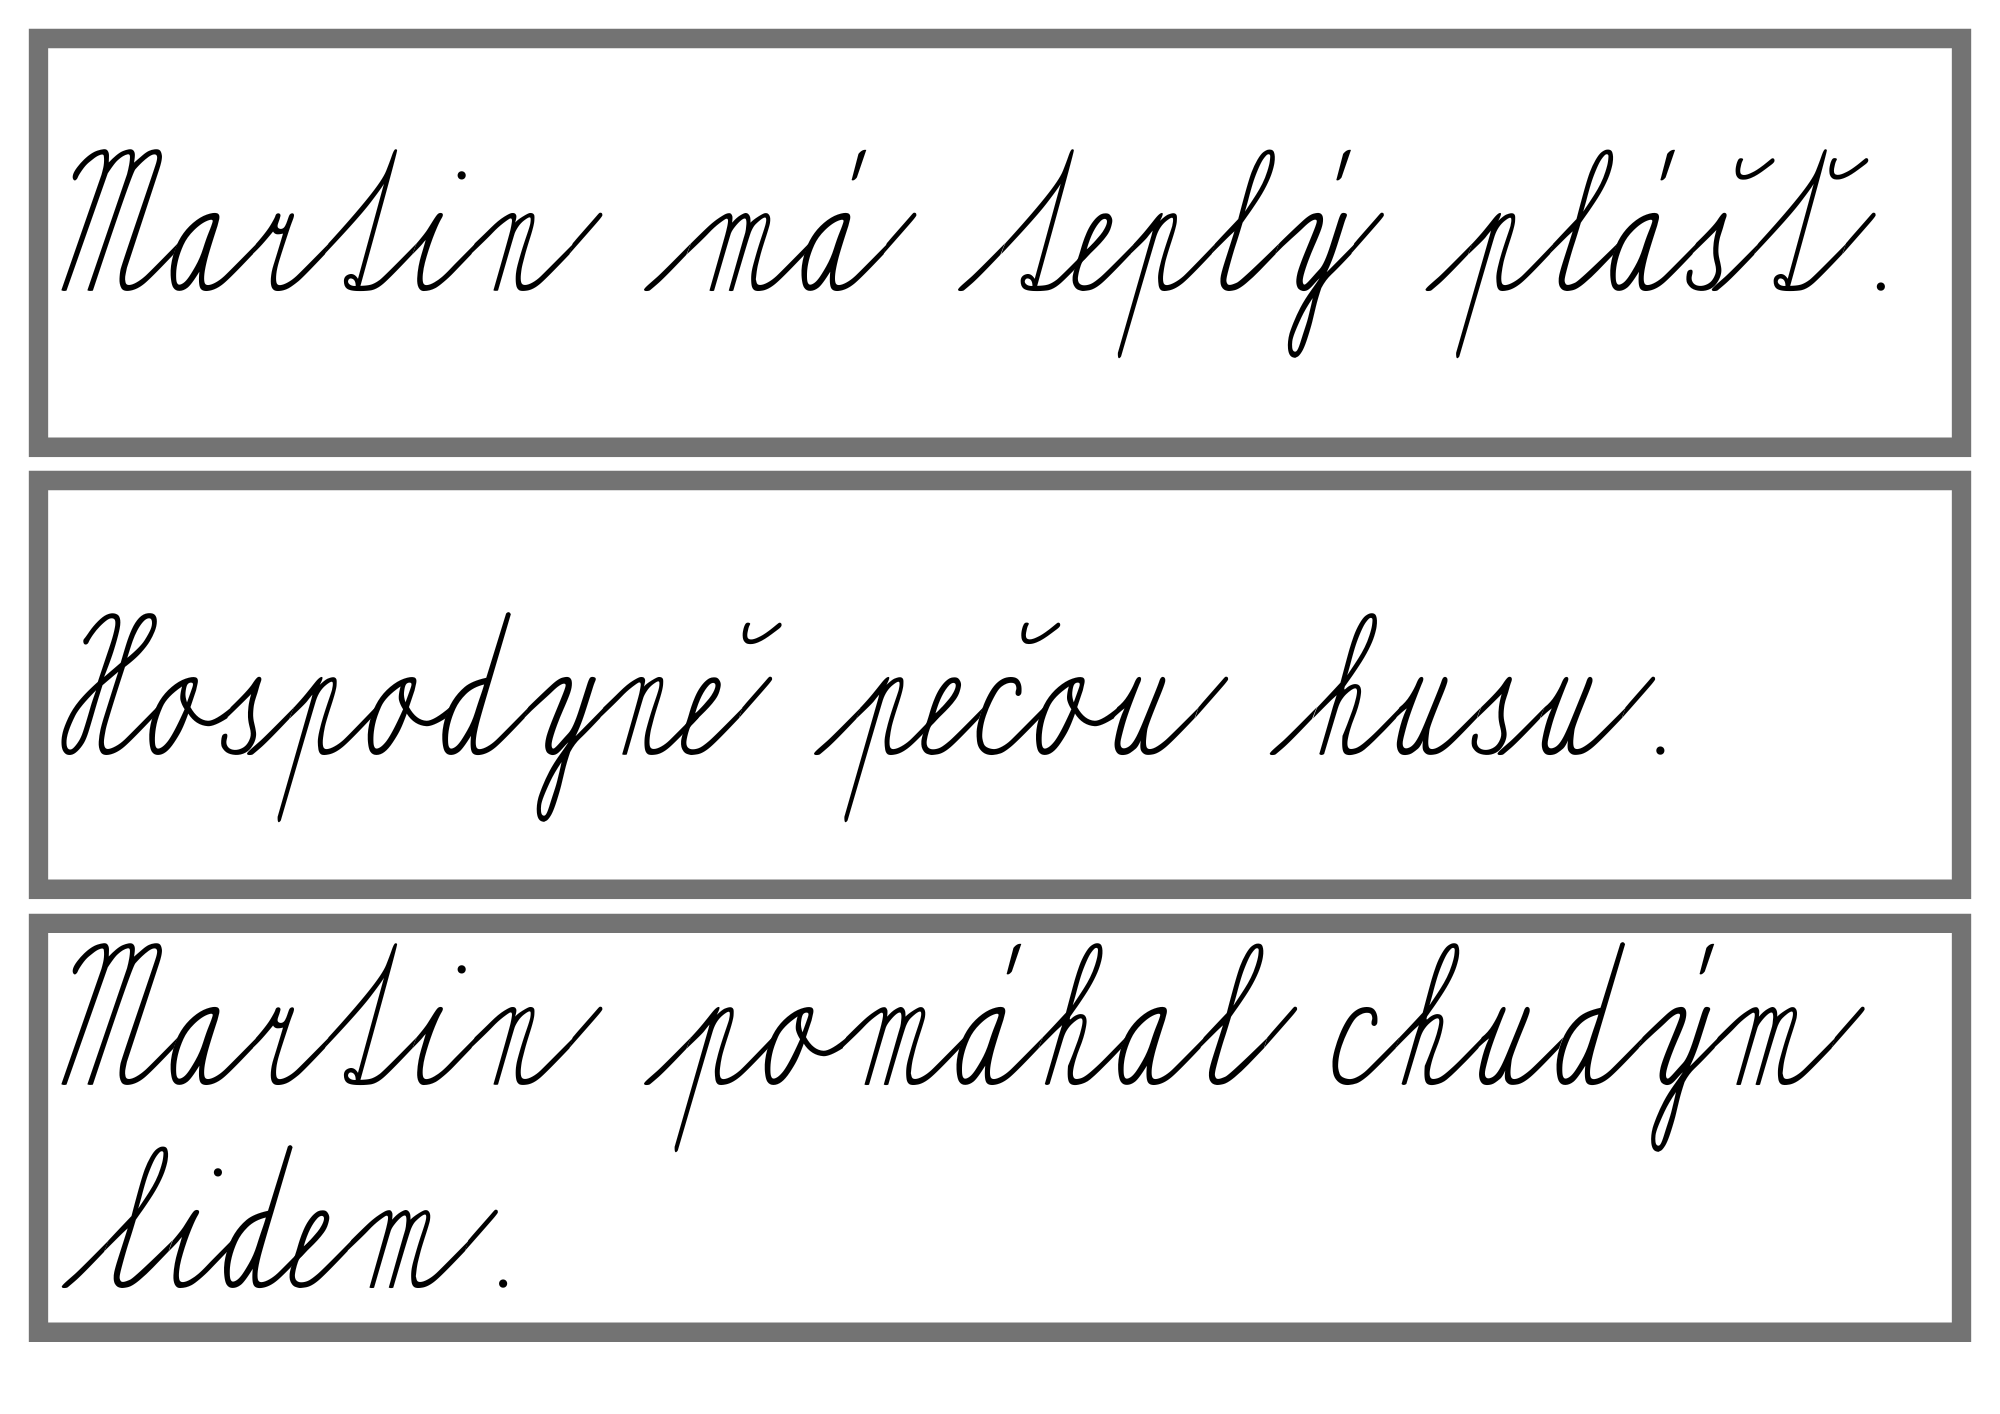 Martin má teplý plášť.
Hospodyně pečou husu.
Martin pomáhal chudým
lidem.